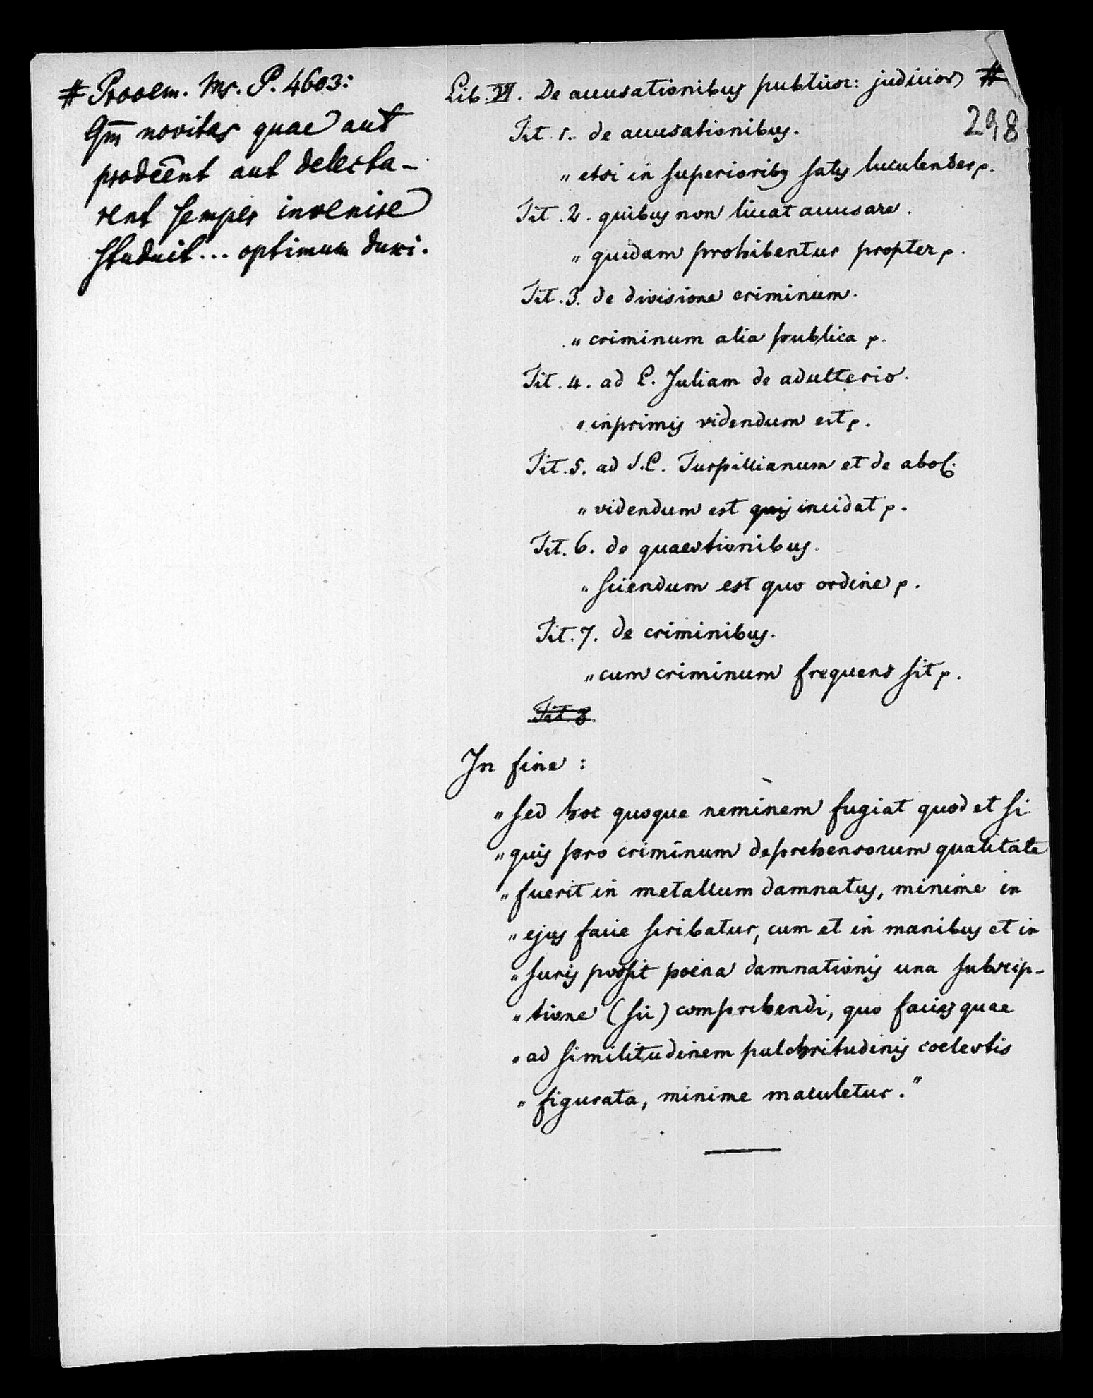 # Prooem. Ms. P. 4603:
Qm̄ novitas quae aut
prodeēnt aut delecta-
rent semper invenire
studuit... optimum duxi.
Lib. VI. De accusationibus publicor: judicior #
298
Tit. 1. de accusationibus.
„ etsi in superioribus satis luculenter p.
Tit. 2. quibus non liceat accusare.
„ quidam prohibentur propter p.
Tit. 3. de divisione criminum.
„ criminum alia publica p.
Tit. 4. ad L. Juliam de adulterio.
„ inprimis videndum est p.
Tit. 5. ad S.C. Turpillianum et de abol.
„ videndum est quis incidat p.
Tit. 6. de quaestionibus.
„ sciendum est quo ordine p.
Tit. 7. de criminibus.
„ cum criminum frequens sit p.
Tit. 8
In fine:
„ sed hoc quoque neminem fugiat quod et si
„ quis pro criminum deprehensorum qualitate
„ fuerit in metallum damnatus, minime in
„ ejus facie scribatur, cum et in manibus et in
„ suris possit poena damnationis una subscrip-
„ tione (sic) comprehendi, quo facies quae
„ ad similitudinem pulchritudinis coelestis
„ figurata, minime maculetur."